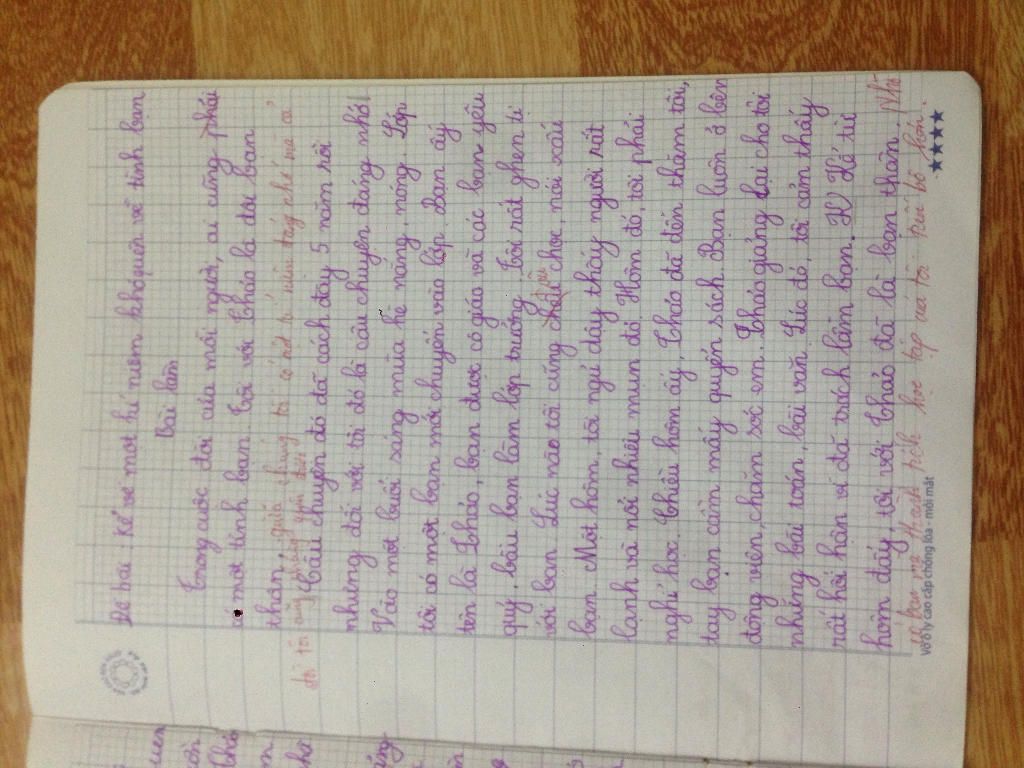 Đề bài: Kể về một kỉ niệm khó quên về tình bạn
Bài làm
Trong cuộc đời của mỗi người, ai cũng phải
có một tình bạn. Tôi với Thảo là đôi bạn
thân. giữa chúng tôi có rất kỉ niệm đáng nhớ mà cả
đời tôi cũng không quên được
Câu chuyện đó đã cách đây 5 năm rồi
nhưng đối với tôi đó là câu chuyện đáng nhớ!
Vào một buổi sáng mùa hè nắng, nóng. Lớp
tôi có một bạn mới chuyển vào lớp. Bạn ấy
tên là Thảo, bạn được cô giáo và các bạn yêu
quý, bầu bạn làm lớp trưởng. Tôi rất ghen tị
với bạn. Lúc nào tôi cũng chọc, nói xấu
bạn. Một hôm, tôi ngủ dậy thấy người rất
lạnh và nổi nhiều mụn đỏ. Hôm đó, tôi phải
nghỉ học. Chiều hôm ấy, Thảo đã đến thăm tôi,
tay bạn cầm mấy quyển sách. Bạn luôn ở bên
động viên, chăm sóc em. Thảo giảng lại cho tôi
những bài toán, bài văn. Lúc đó, tôi cảm thấy
rất hối hận vì đã trách lầm bạn. Kể từ
hôm đấy, tôi với Thảo đã là bạn thân. Nhờ
có bạn mà thành tích học tập của tôi tiến bộ hơn.
Vở ô ly cao cấp chống lóa - mỏi mắt